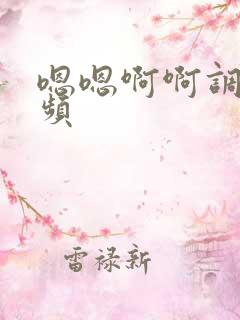 嗯嗯啊啊調
頻
雷禄新